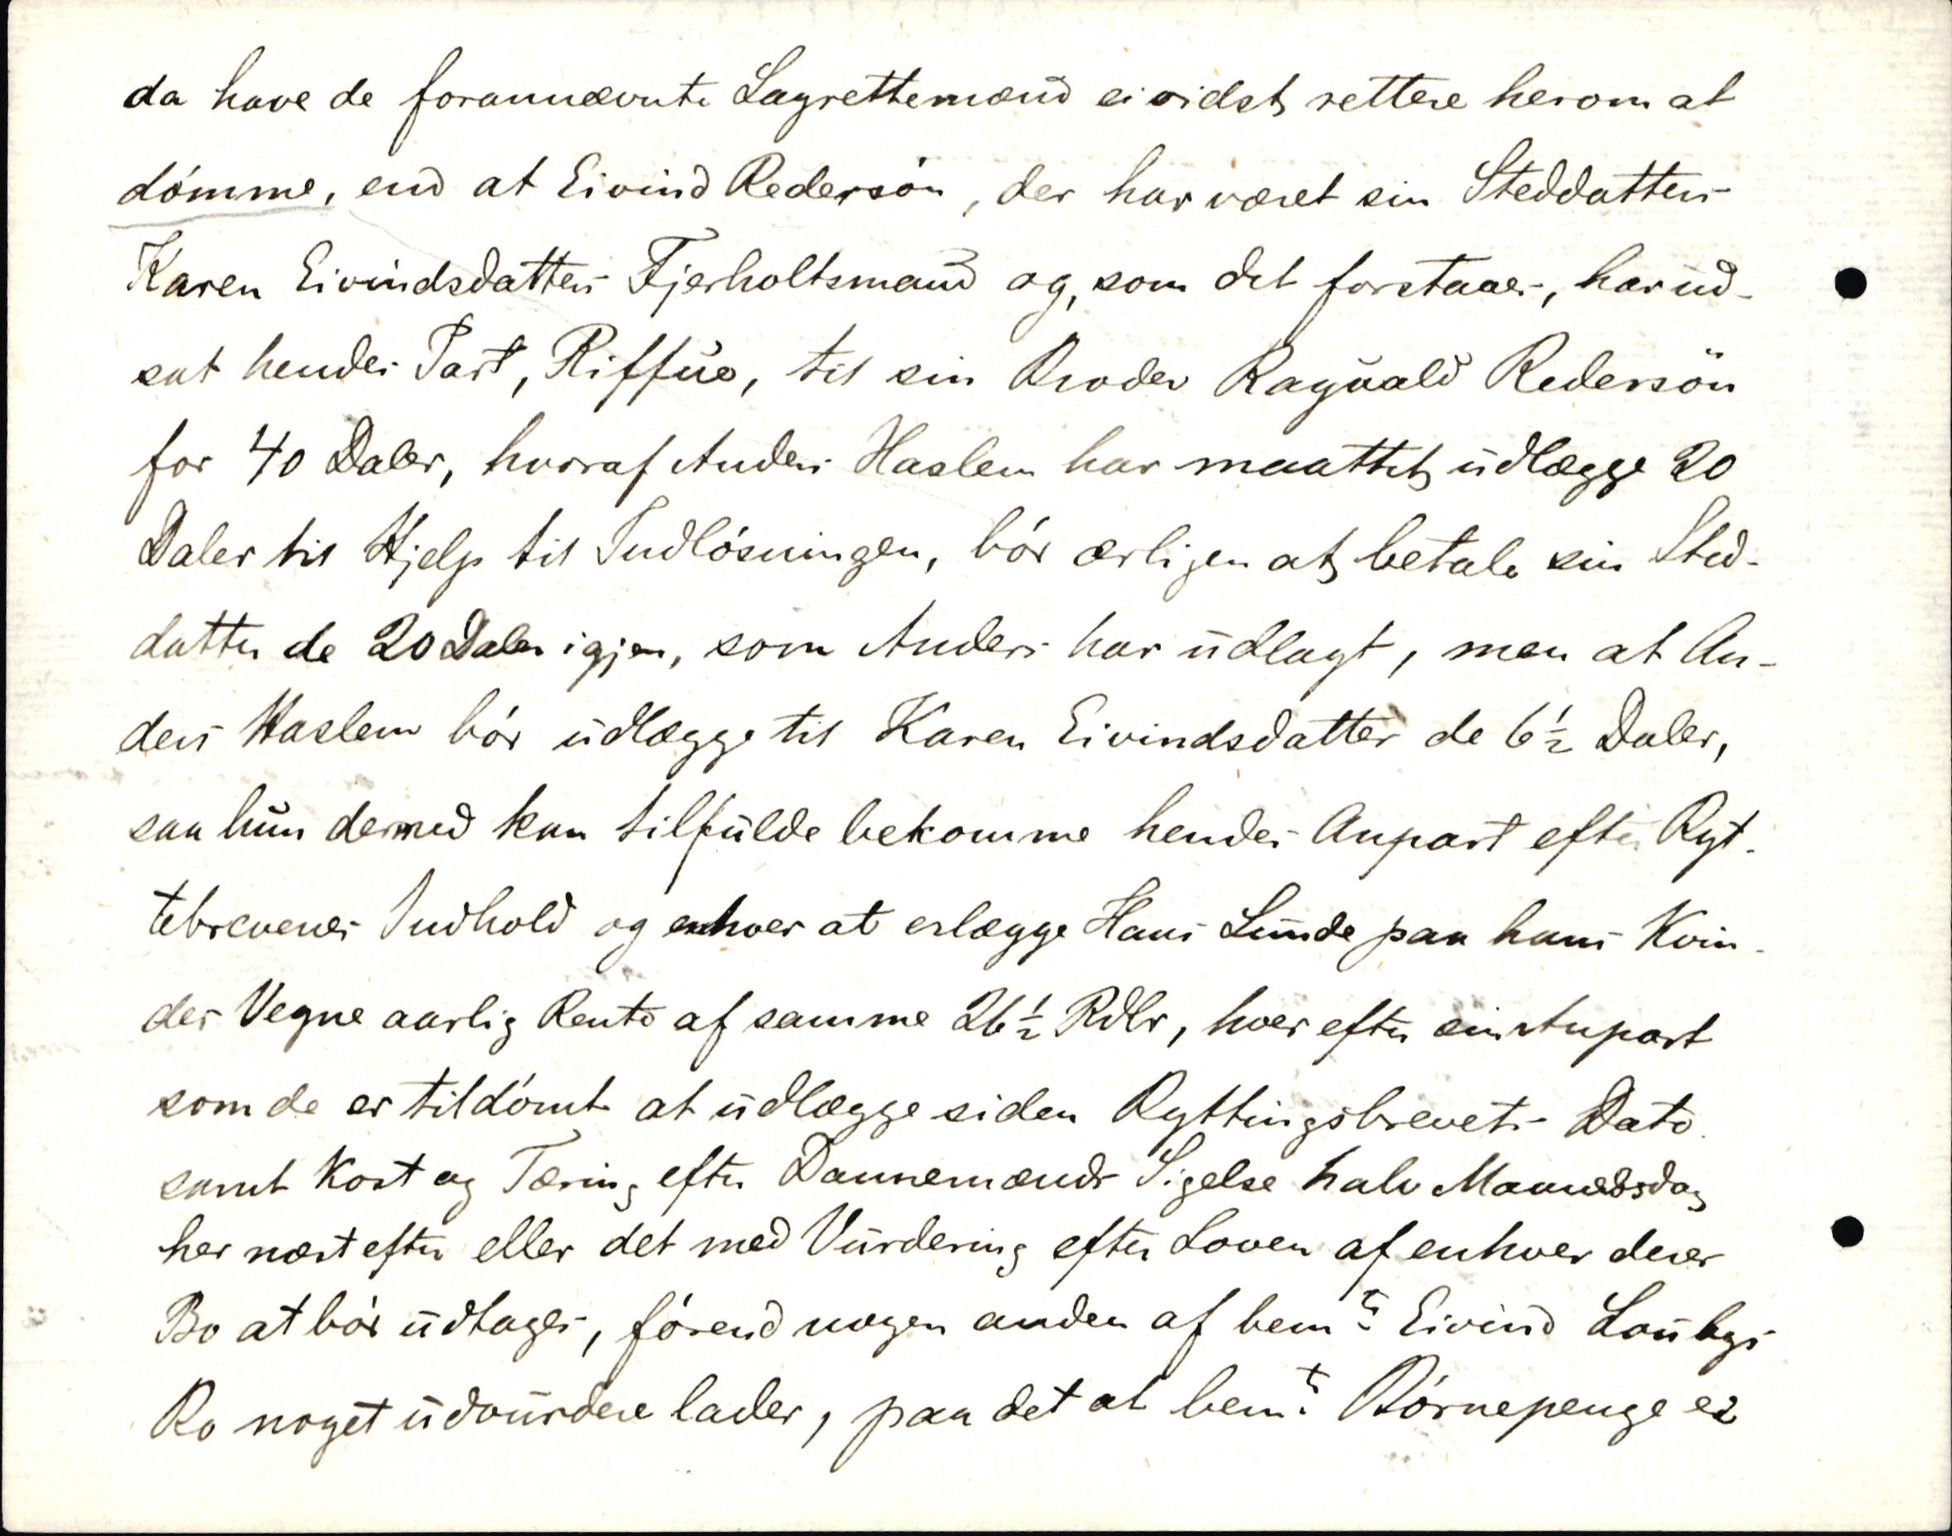 da have de forannævnte Lagrettemænd ei vidst rettere herom at
dömme, end at Eivind Redersön, der har været sin Steddatters
Karen Eivindsdatters Fjerholtsmand og, som det forstaaes, har ud-
sat hendes Part, Riffue, til sin Broder Raguald Redersön
for 40 Daler, hvoraf Anders Haslem har maattet udlægge 20
Daler til Hjelp til Indlösningen, bör ærligen at betale sin Sted-
datter de 20 Daler igjen, som Anders har udlagt, men at An-
ders Haslem bör udlægge til Karen Eivindsdatter de 6½ Daler,
saa hun dermed kan tilfulde bekomme hendes Anpart efter Ryt-
tebrevenes Indhold og enhver at erlægge Hans Lunde paa hans Kvin-
des Vegne aarlig Rente af samme 26½ Rdlr, hver efter sin Anpart
som de er tildömt at udlægge siden Ryttingsbrevets Dato
samt Kost og Tæring efter Dannemænds Sigelse halv Maanedsdag
her næst efter eller det med Vurdering efter Loven af enhver deres
Bo at bör udtages, förend nogen anden af bem:te Eivind Loubys
Bo noget udvurdere lader, paa det at bem:te Börnepenge ei